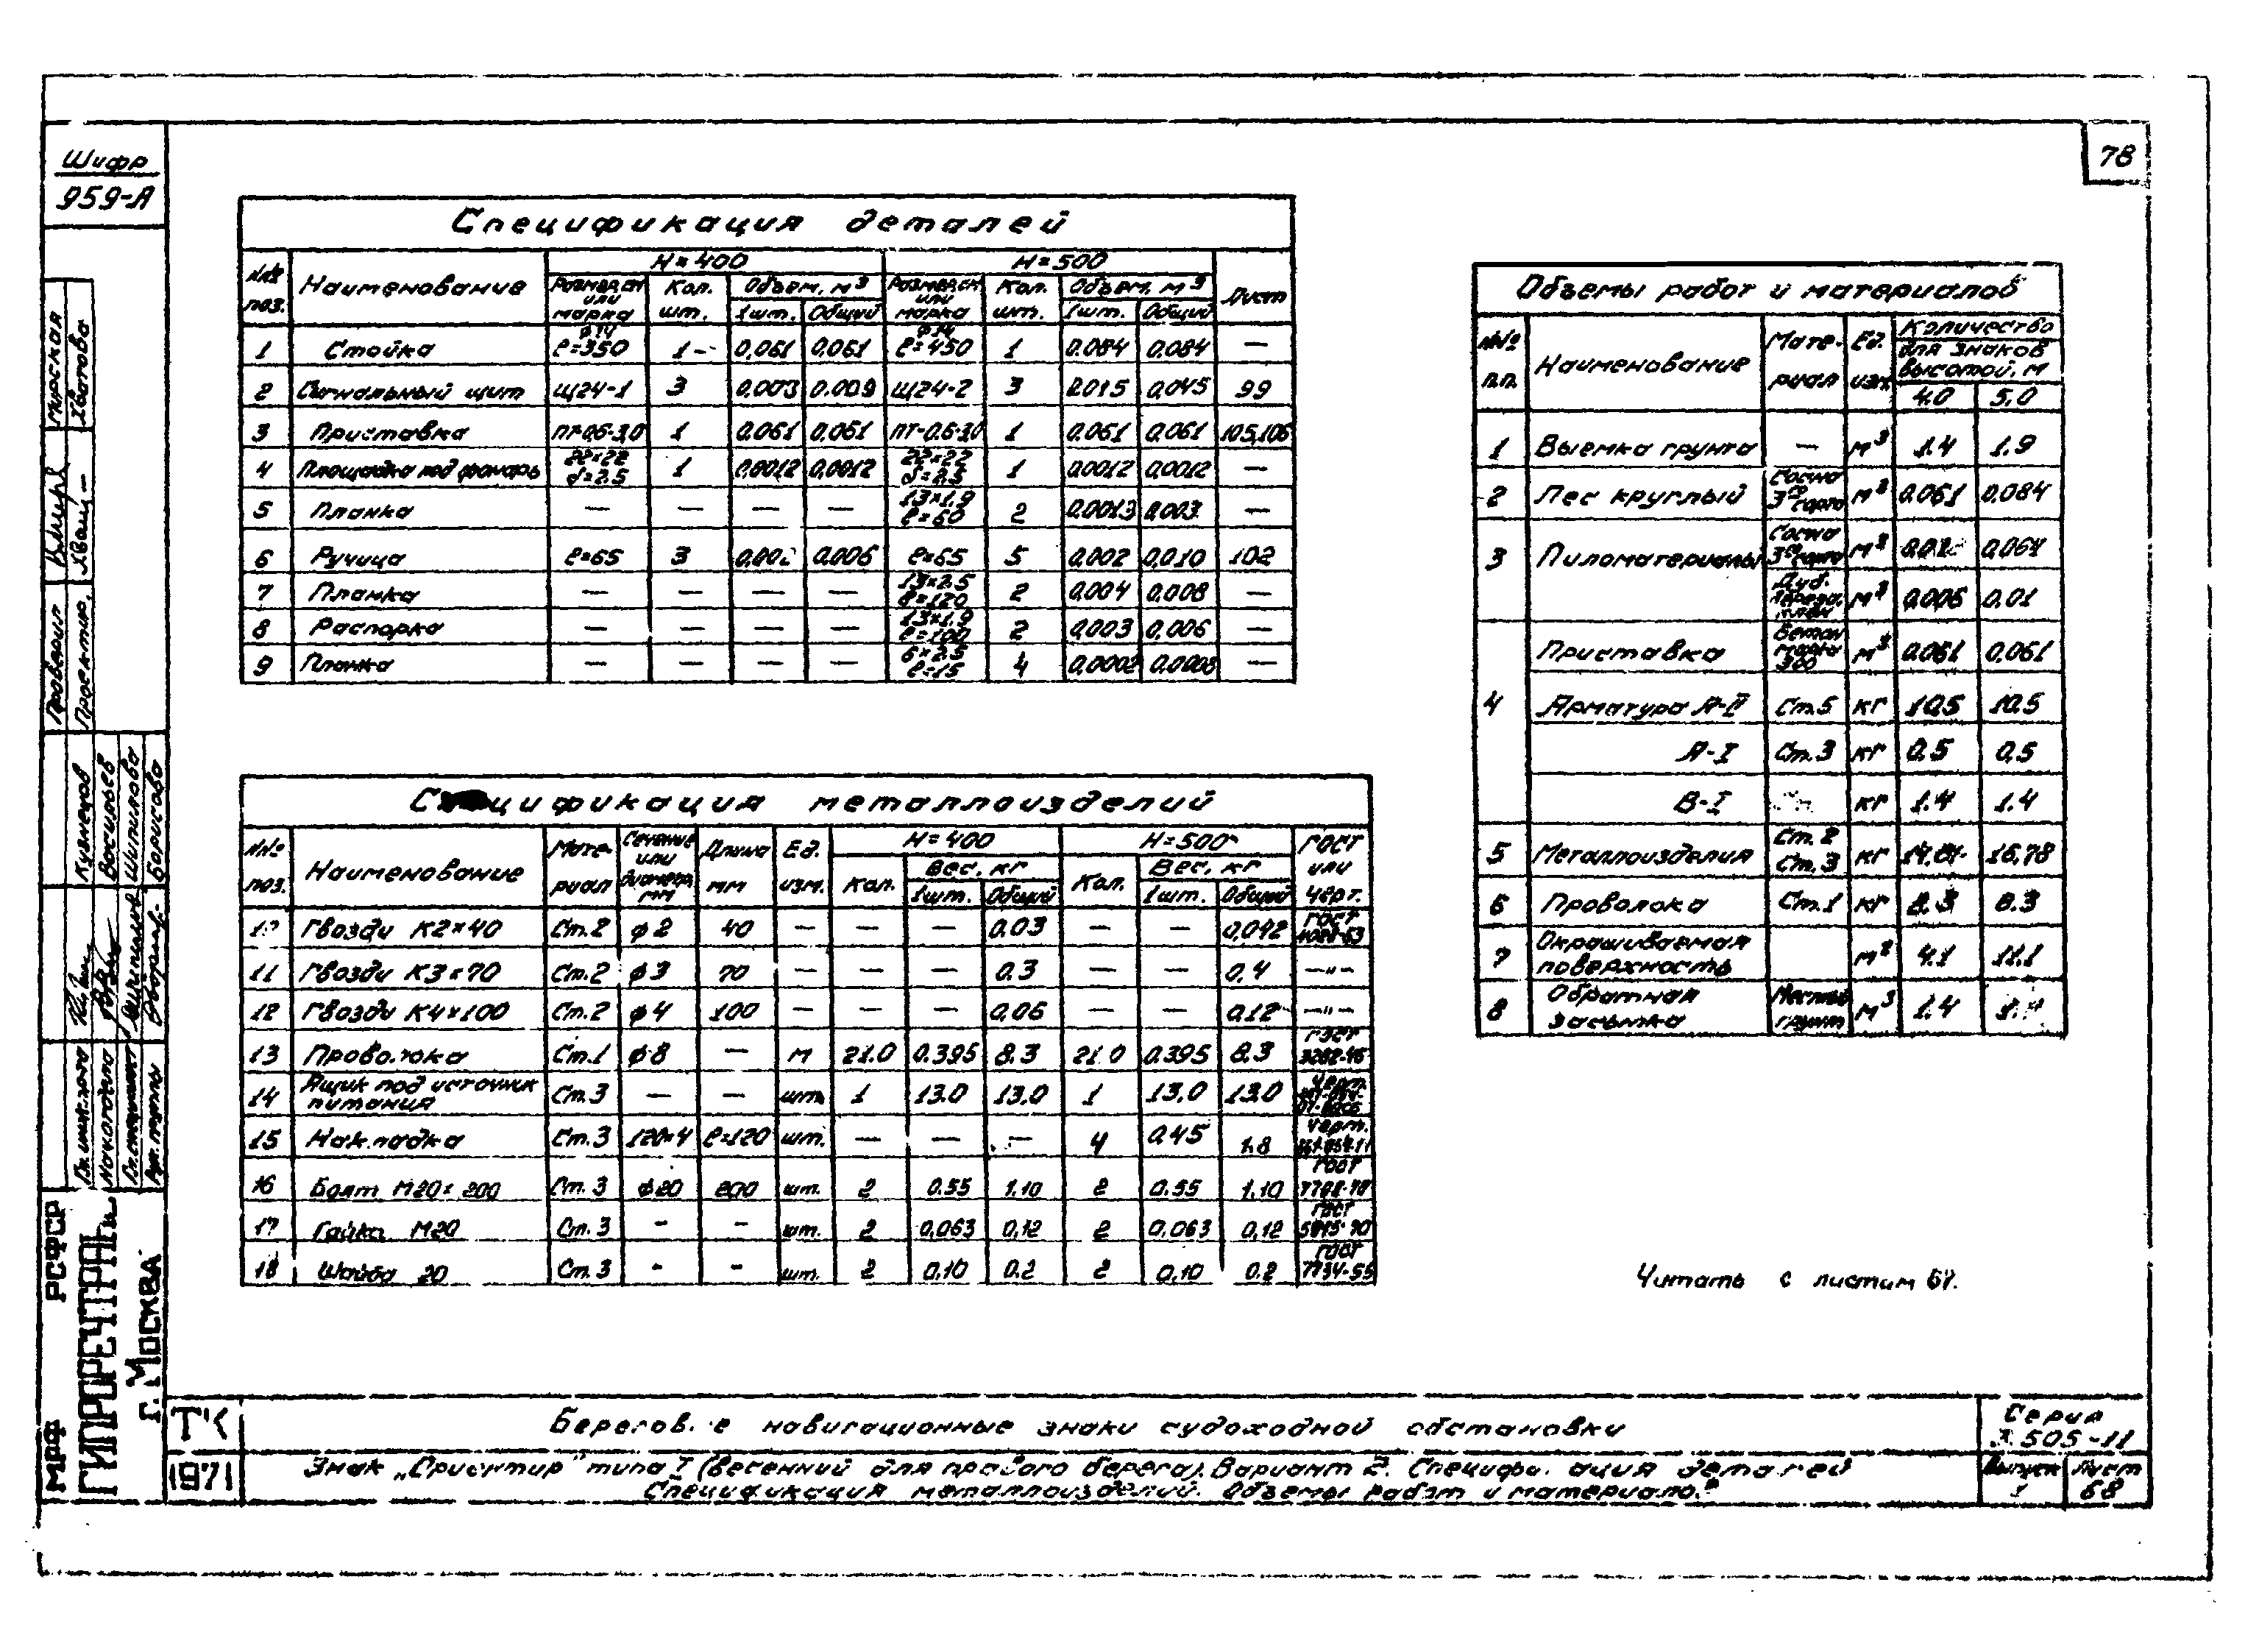 78
Шифр
959-А
Спецификация деталей
№№ поз. Наименование H=400 H=500 Лист
Размер, см или марка Кол. шт. Объем, м³ Размер, см или марка Кол. шт. Объем, м³
1шт. Общий 1шт. Общий
1 Стойка ø14 ℓ=350 1 0,061 0,061 ø14 ℓ=450 1 0.084 0.084 —
2 Сигнальный щит Щ24-1 3 0,003 0.009 Щ24-2 3 0.015 0,045 99
3 Приставка ПТ-0,6-3,0 1 0,061 0,061 ПТ-0.6-3.0 1 0.061 0.061 105,106
4 Площадка под фонарь 22×22 δ=2.5 1 0,0012 0,0012 22×22 δ=2,5 1 0.0012 0.0012 —
5 Планка — — — — 13×1.9 ℓ=60 2 0.0013 0.003 —
6 Ручица ℓ=65 3 0,002 0,006 ℓ=65 5 0,002 0,010 102
7 Планка — — — — 13×2.5 ℓ=120 2 0.004 0.008 —
8 Распорка — — — — 13×1.9 ℓ=100 2 0,003 0,006 —
9 Планка — — — — 6×2.5 ℓ=15 4 0,0002 0.0008 —
Объемы работ и материалов
№№ п.п. Наименование Мате-риал Ед. изм. Количество для знаков высотой, м
4.0 5.0
1 Выемка грунта — м³ 1.4 1.9
2 Лес круглый Сосна 3го сорта м³ 0.061 0,084
3 Пиломатериалы Сосна 3го сорта м³ 0,064
Дуб. м³ 0,006 0,01
Приставка Бетон марка 300 м³ 0.061 0,061
4 Арматура А-II Ст.5 кг 10,5 10.5
А-I Ст.3 кг 0,5 0,5
В-I кг 1.4 1.4
5 Металлоизделия Ст. 2 Ст. 3 кг 14,81 16,78
6 Проволока Ст.1 кг 8.3 8.3
7 Окрашиваемая поверхность м² 4.1 11.1
8 Обратная засыпка Местный грунт м³ 1.4
цификация металлоизделий
№№ поз. Наименование Мате-риал Сечение или диаметр, мм Длина мм Ед. изм. H=400 H=500 ГОСТ или черт.
Кол. Вес, кг Кол. Вес, кг
1шт. Общий 1шт. Общий
10 Гвозди К2×40 Ст.2 ø2 40 — — — 0.03 — — 0,042 ГОСТ
11 Гвозди К3×70 Ст.2 ø3 70 — — — 0.3 — — 0.4 —"—
12 Гвозди К4×100 Ст.2 ø4 100 — — — 0,06 — — 0.12 —"—
13 Проволока Ст.1 ø8 — м 21.0 0.395 8.3 21.0 0.395 8.3 ГОСТ
14 Ящик под источник питания Ст.3 — — шт. 1 13.0 13,0 1 13,0 13.0 Черт.
15 Накладка Ст.3 120×4 ℓ=120 шт. — — — 4 0.45 1.8 Черт.
16 Болт М20×200 Ст.3 ø20 200 шт. 2 0.55 1.10 2 0.55 1.10 ГОСТ
17 Гайка М20 Ст.3 - - шт. 2 0,063 0,12 2 0,063 0,12 ГОСТ 5915-70
18 Шайба 20 Ст.3 - - шт. 2 0.10 0.2 2 0,10 0.2 ГОСТ
Читать с листом 67.
Проверил Мирская
Проектир. Хватова
Гл. инж. пр-та Кузнецов
Нач. отдела Васильев
Гл. специалист Шипилова
Рук. группы Борисова
МРФ РСФСР
ГИПРОРЕЧТРАНС
г. Москва
ТК Берегов. е навигационные знаки судоходной обстановки Серия 3.505-11
1971 Знак „Ориентир" типа I (весенний для правого берега). Вариант 2. Спецификация деталей Выпуск Лист
Спецификация металлоизделий. Объемы работ и материалов 1 68